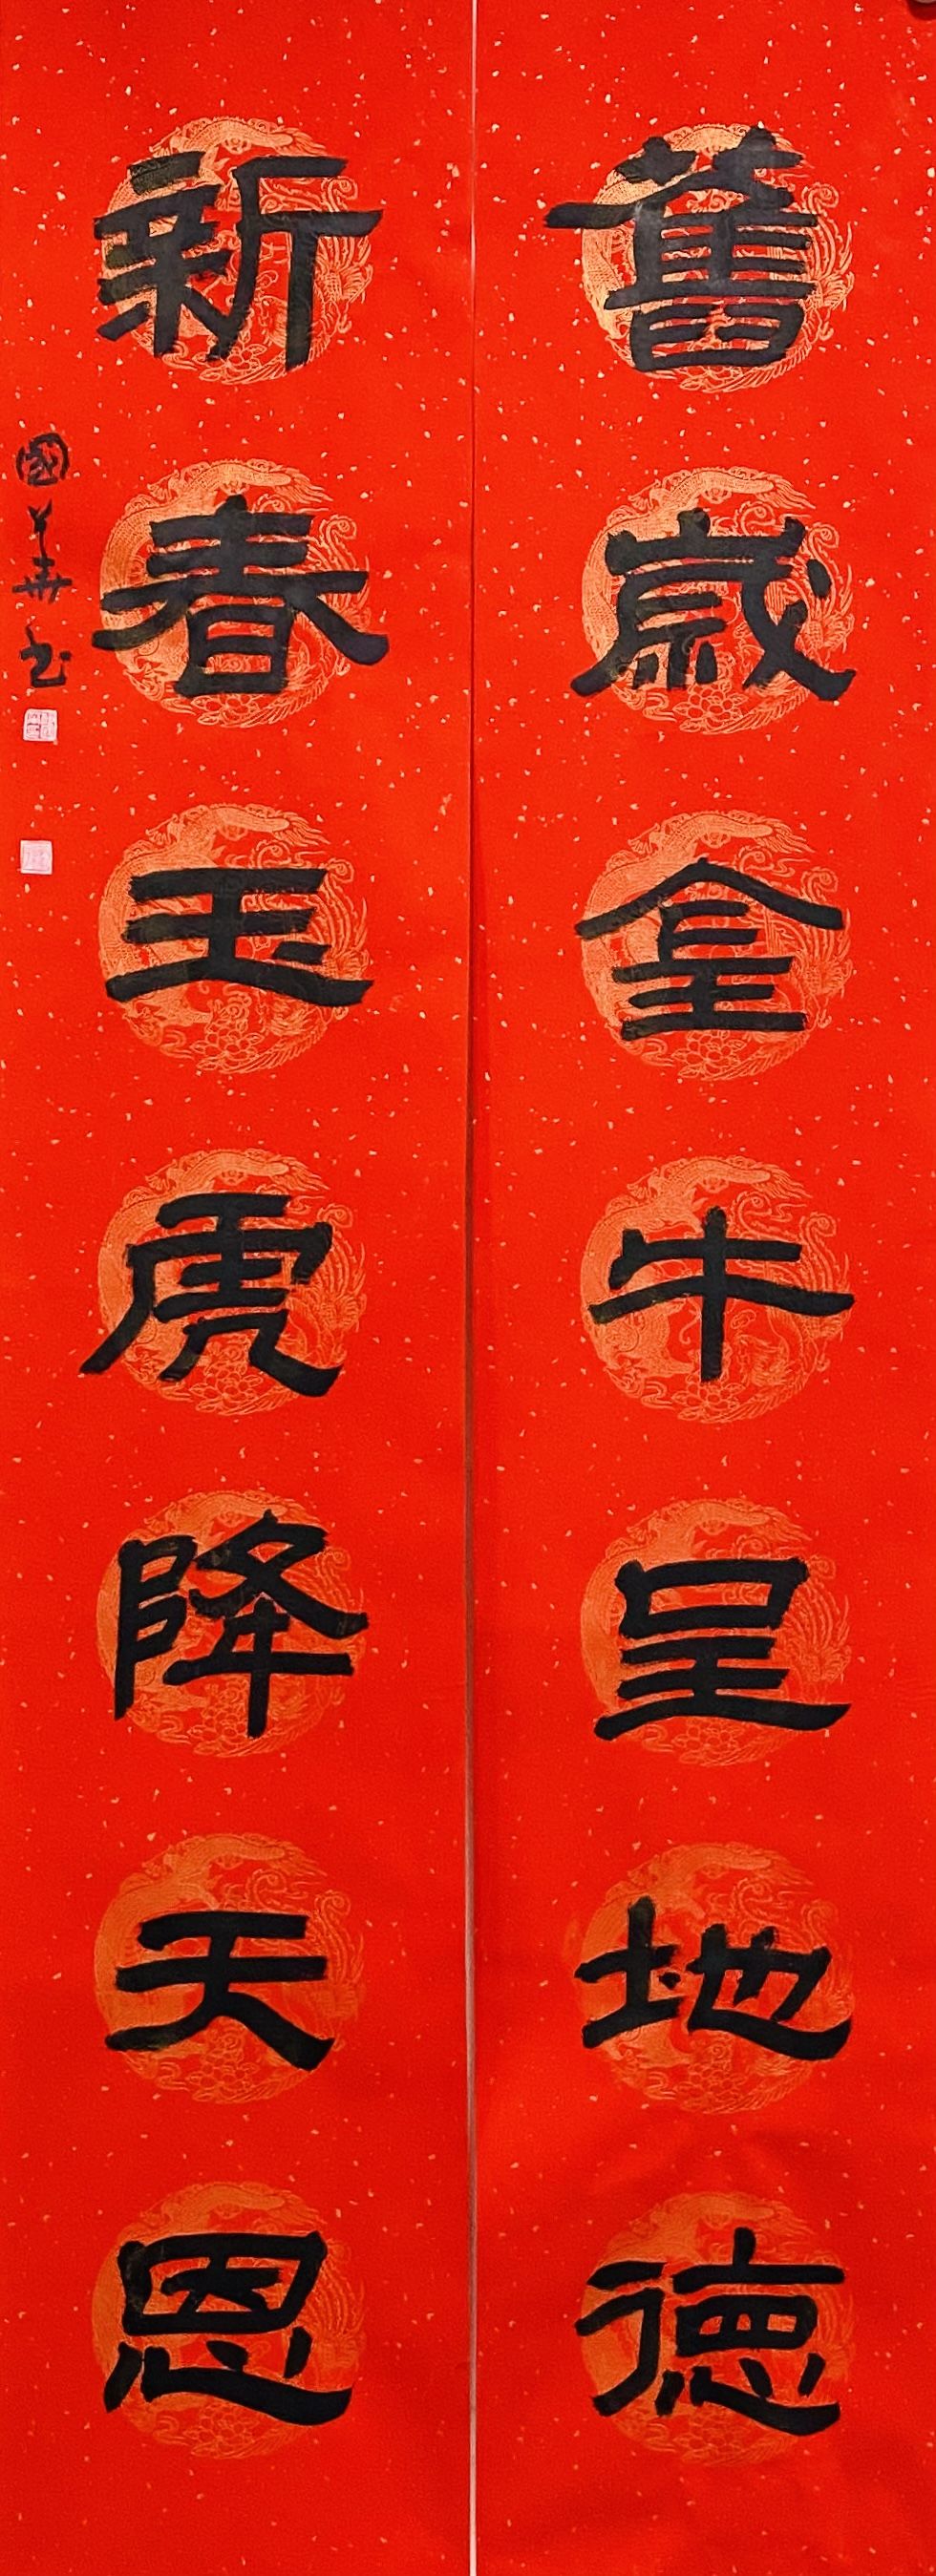 舊歲金牛呈地德
新春玉虎降天恩
國華书